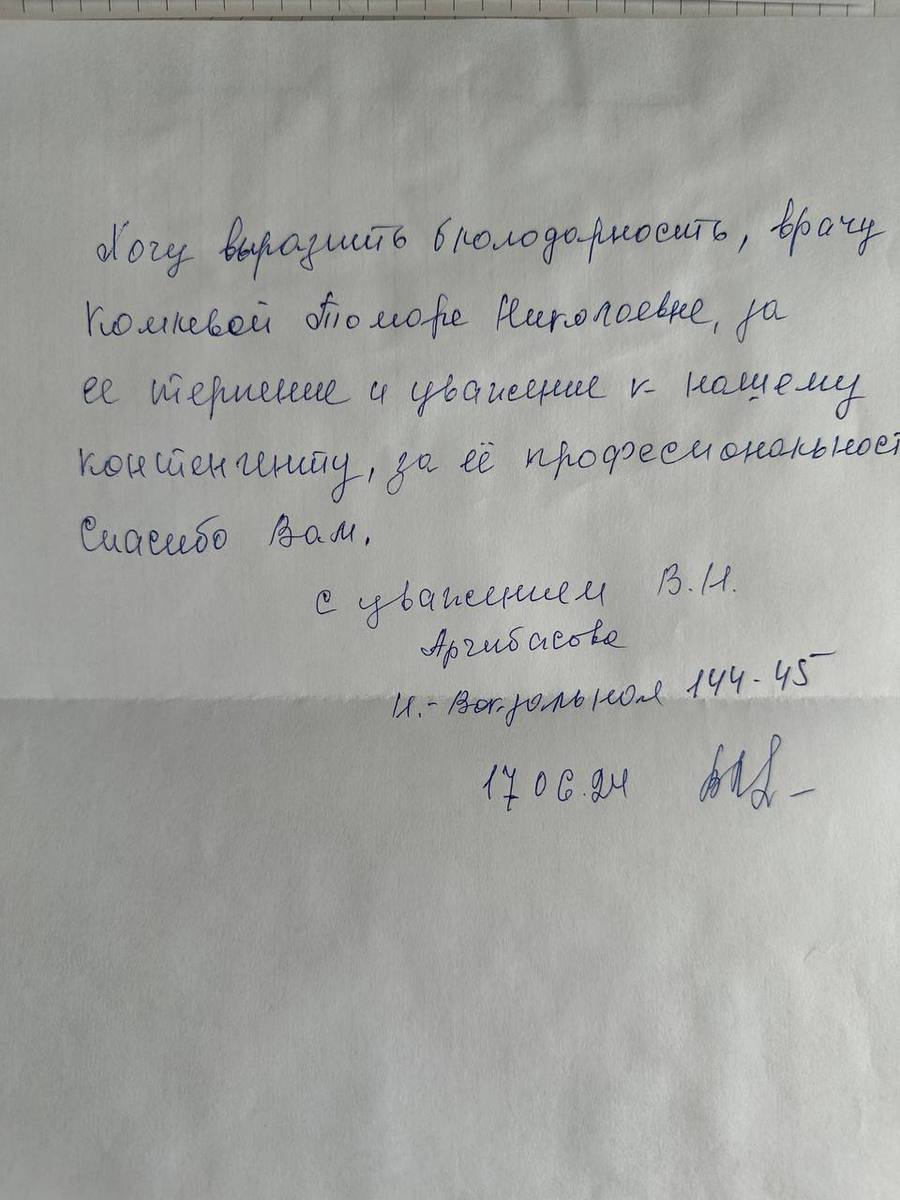 Хочу выразить благодарность, врачу
Комневой Тамаре Николаевне, за
ее терпение и уважение к нашему
контенгенту, за её професиональност
Спасибо Вам.
с уважением В.Н.
Аргибасова
Н.-Вокзальная 144-45
17 06.24